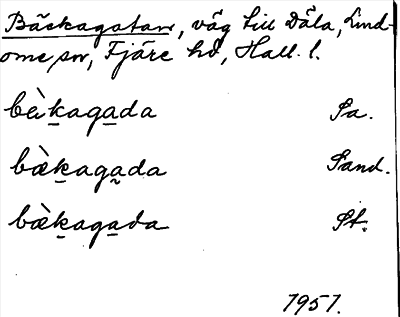 Bäckagatan, väg till Dala, Lind-
ome sn, Fjäre hd, Hall. l.
bèkagada Sa.
bæ̀kaga̰da Sand.
bæ̀kagada St.
1951.